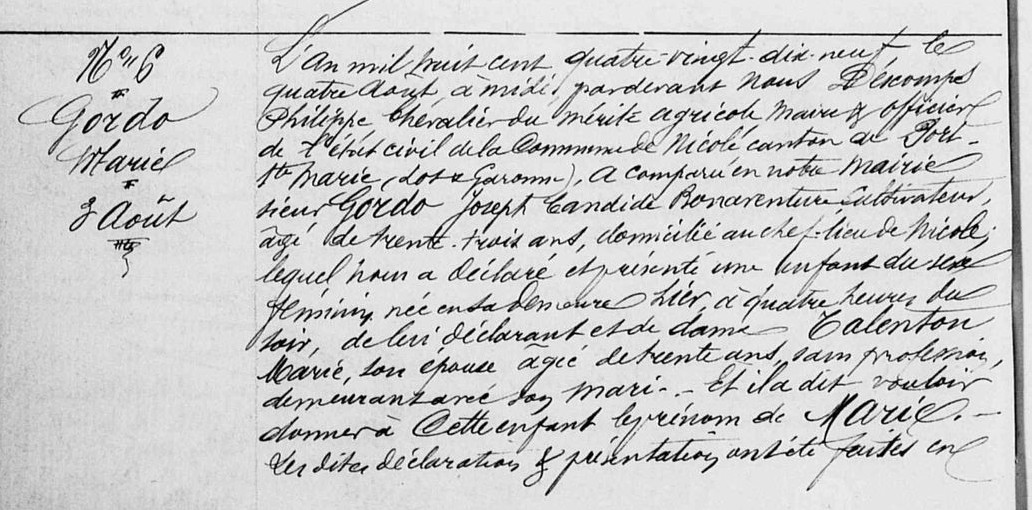 N° 6
Gordo
Marie
3 Août
L'an mil huit cent quatre-vingt-dix-neuf le
quatre Août à midi, pardevant nous Descomps
Philippe Chevalier du mérite agricole Maire & officier
de l'état civil de la Commune de Nicole canton de Port-
Ste Marie, (Lot & Garonne), a comparu en notre Mairie
sieur Gordo Joseph Candide Bonaventure Cultivateur,
âgé de trente-trois ans, domicilié au chef-lieu de Nicole;
lequel nous a déclaré et présenté une enfant du sexe
féminin, née en sa demeure hier, à quatre heures du
soir, de lui déclarant et de dame Talenton
Marie, son épouse agée de trente ans, sans profession,
demeurant avec son mari.- Et il a dit vouloir
donner à cette enfant le prénom de Marie.-
Les dites déclaration & présentation ont été faites en